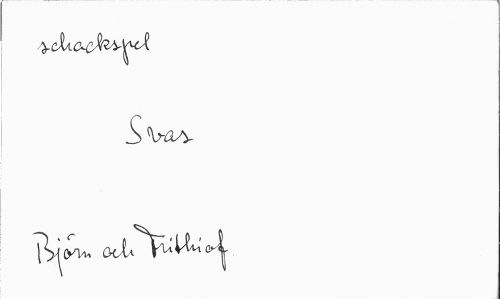 schackspel
Svas
Björn och Frithiof